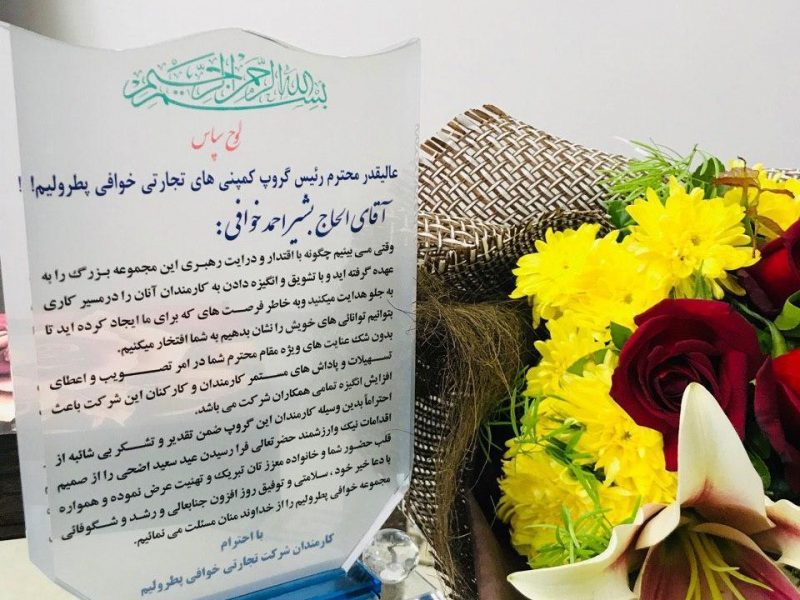 بسم الله الرحمن الرحیم
لوح سپاس
عالیقدر محترم رئیس گروپ کمپنی های تجارتی خوافی پطرولیم! !
آقای الحاج بشیر احمد خوافی :
وقتی می بینیم چگونه با اقتدار و درایت رهبری این مجموعه بزرگ را به
عهده گرفته اید و با تشویق و انگیزه دادن به کارمندان آنان را درمسیر کاری
به جلو هدایت میکنید وبه خاطر فرصت های که برای ما ایجاد کرده اید تا
بتوانیم توانائی های خویش را نشان بدهیم به شما افتخار میکنیم.
بدون شک عنایت های ویژه مقام محترم شما در امر تصویب و اعطای
تسهیلات و پاداش های مستمر کارمندان و کارکنان این شرکت باعث
افزایش انگیزه تمامی همکاران شرکت می باشد.
احتراماً بدین وسیله کارمندان این گروپ ضمن تقدیر و تشکر بی شائبه از
اقدامات نیک وارزشمند حضرتعالی فرا رسیدن عید سعید اضحی را از صمیم
قلب حضور شما و خانواده معزز تان تبریک و تهنیت عرض نموده و همواره
با دعا خیر خود، سلامتی و توفیق روز افزون جنابعالی و رشد و شگوفائی
مجموعه خوافی پطرولیم را از خداوند منان مسئلت می نمائیم.
با احترام
کارمندان شرکت تجارتی خوافی پطرولیم